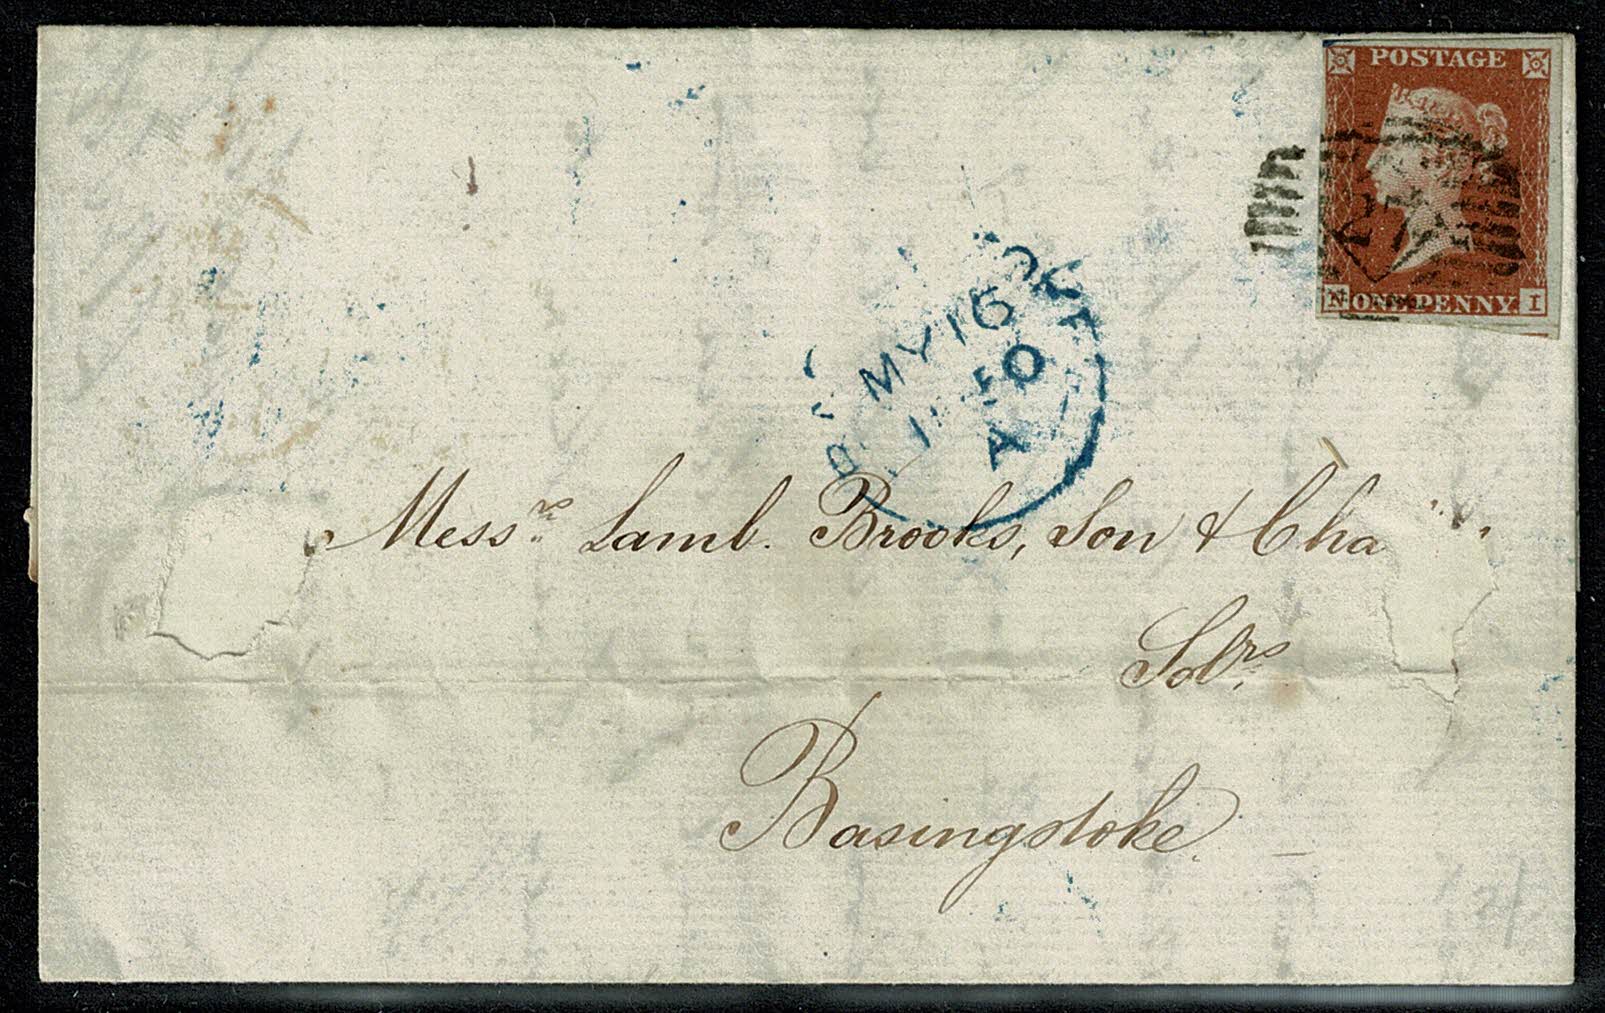 POSTAGE
N ONE PENNY. I
MY 16
50
A
Messrs. Lamb. Brooks, Son & Cha
Solrs.
Basingstoke.